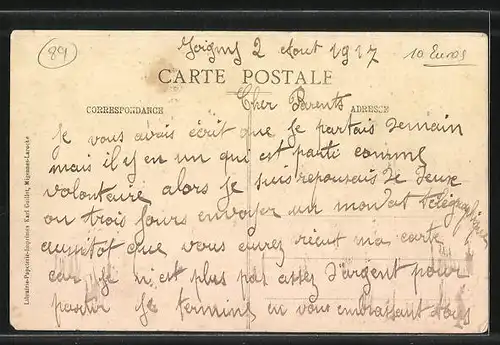 89
Joigny 2 Aout 1917
10 Euros
CARTE POSTALE
Cher Parents
CORRESPONDANCE
ADRESSE
Je vous avais écrit que Je partais Demain
mais il y en un qui est parti comme
volontaire alors Je suis repoussais de Deux
ou trois Jours envoyer un mandat télégraphique
aussitot que vous aurez recut ma carte
car Je n'est plus pas assez D'argent pour
partir Je termine en vous embrassant tous
Librairie-Papeterie-Imprimerie Karl Guillot, Migennes-Laroche